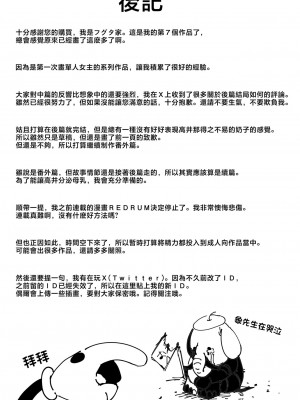 後記
十分感謝您的購買，我是フグタ家。這是我的第７個作品了，
總會感覺原來已經畫了這麼多了啊。
因為是第一次畫單人女主的系列作品，讓我積累了很好的經驗。
大家對中篇的反響比想象中的還要強烈，我在X上收到了很多關於後篇結局如何的評論。
雖然已經很努力了，但如果沒能讓您滿意的話，十分抱歉。還請不要生氣，不要欺負我。
姑且打算在後篇就完結，但是總有一種沒有好好表現高井那得之不易的奶子的感覺。
所以雖然只是草稿，但還是畫了前一頁的致歉。
但還是不夠，所以打算繼續制作番外篇。
雖說是番外篇，但故事情節還是接著後篇走的，所以其實應該算是續篇。
為了能讓高井分泌母乳，我會充分準備的。
順帶一提，我之前連載的漫畫REDRUM決定停止了。我非常懊悔悲傷。
連載真難啊，沒有什麼好方法嗎？
但也正因如此，時間空下來了，所以暫時打算將精力都投入到成人向作品當中。
可能會出很多作品，還請多多關照。
然後還要提一句，我有在玩X(Twitter)。因為不久前改了ID，
之前留的ID已經失效了，所以在這里貼上我的新ID。
偶爾會上傳一些插畫，要對大家保密哦。記得關注哦。
拜拜
魯先生在哭泣